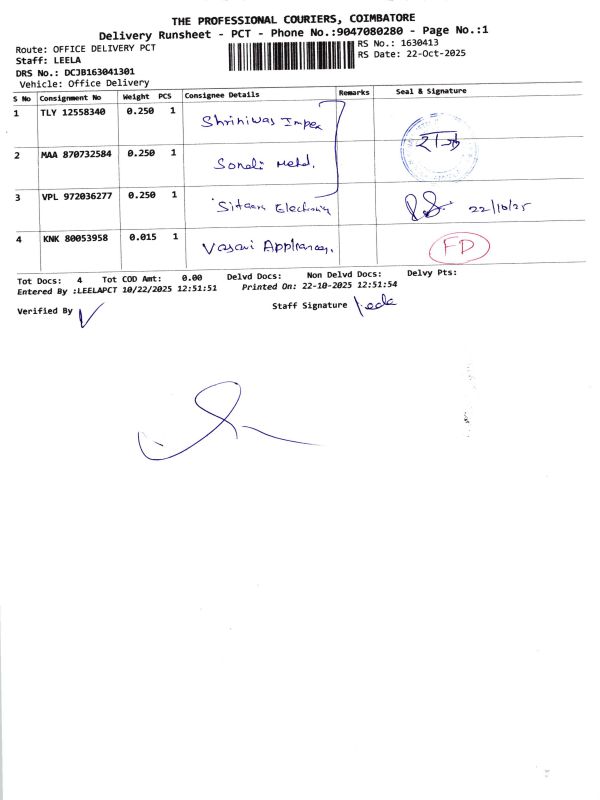 THE PROFESSIONAL COURIERS, COIMBATORE
Delivery Runsheet - PCT - Phone No.:9047080280 - Page No.:1
Route: OFFICE DELIVERY PCT
Staff: LEELA
DRS No.: DCJB163041301
Vehicle: Office Delivery
RS No.: 1630413
RS Date: 22-Oct-2025
S No Consignment No Weight PCS Consignee Details Remarks Seal & Signature
1 TLY 12558340 0.250 1 Shriniwas Impex
2 MAA 870732584 0.250 1 Sonali
3 VPL 972036277 0.250 1 22/10/25
4 KNK 80053958 0.015 1 Vasavi FD
Tot Docs: 4 Tot COD Amt: 0.00 Delvd Docs: Non Delvd Docs: Delvy Pts:
Entered By :LEELAPCT 10/22/2025 12:51:51 Printed On: 22-10-2025 12:51:54
Verified By
Staff Signature Leela